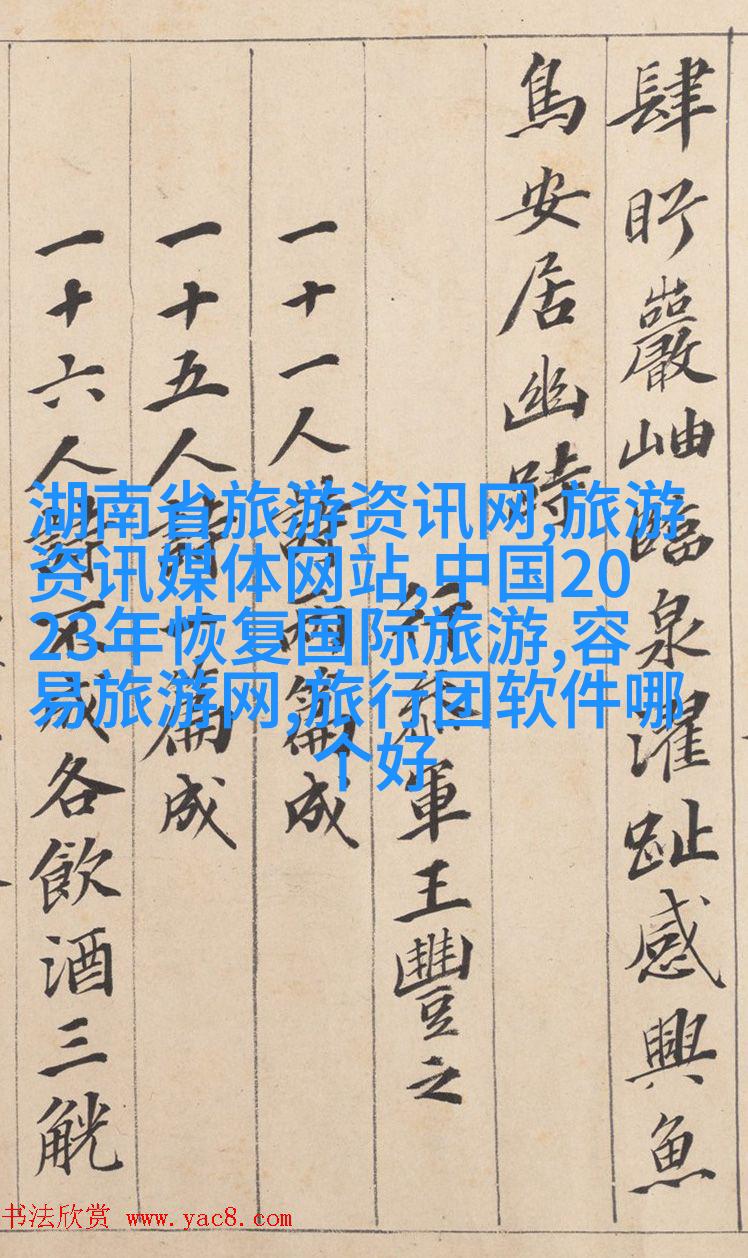 肆眄巖岫臨泉濯趾感興魚
鳥安居幽跱
行叅軍王豐之
一十一人詩兩篇成
一十五人詩一篇成
一十六人詩不成各飲酒三觥
湖南省旅游资讯网,旅游
资讯媒体网站,中国20
23年恢复国际旅游,容
易旅游网,旅行团软件哪
个好
书法欣赏 www.yac8.com